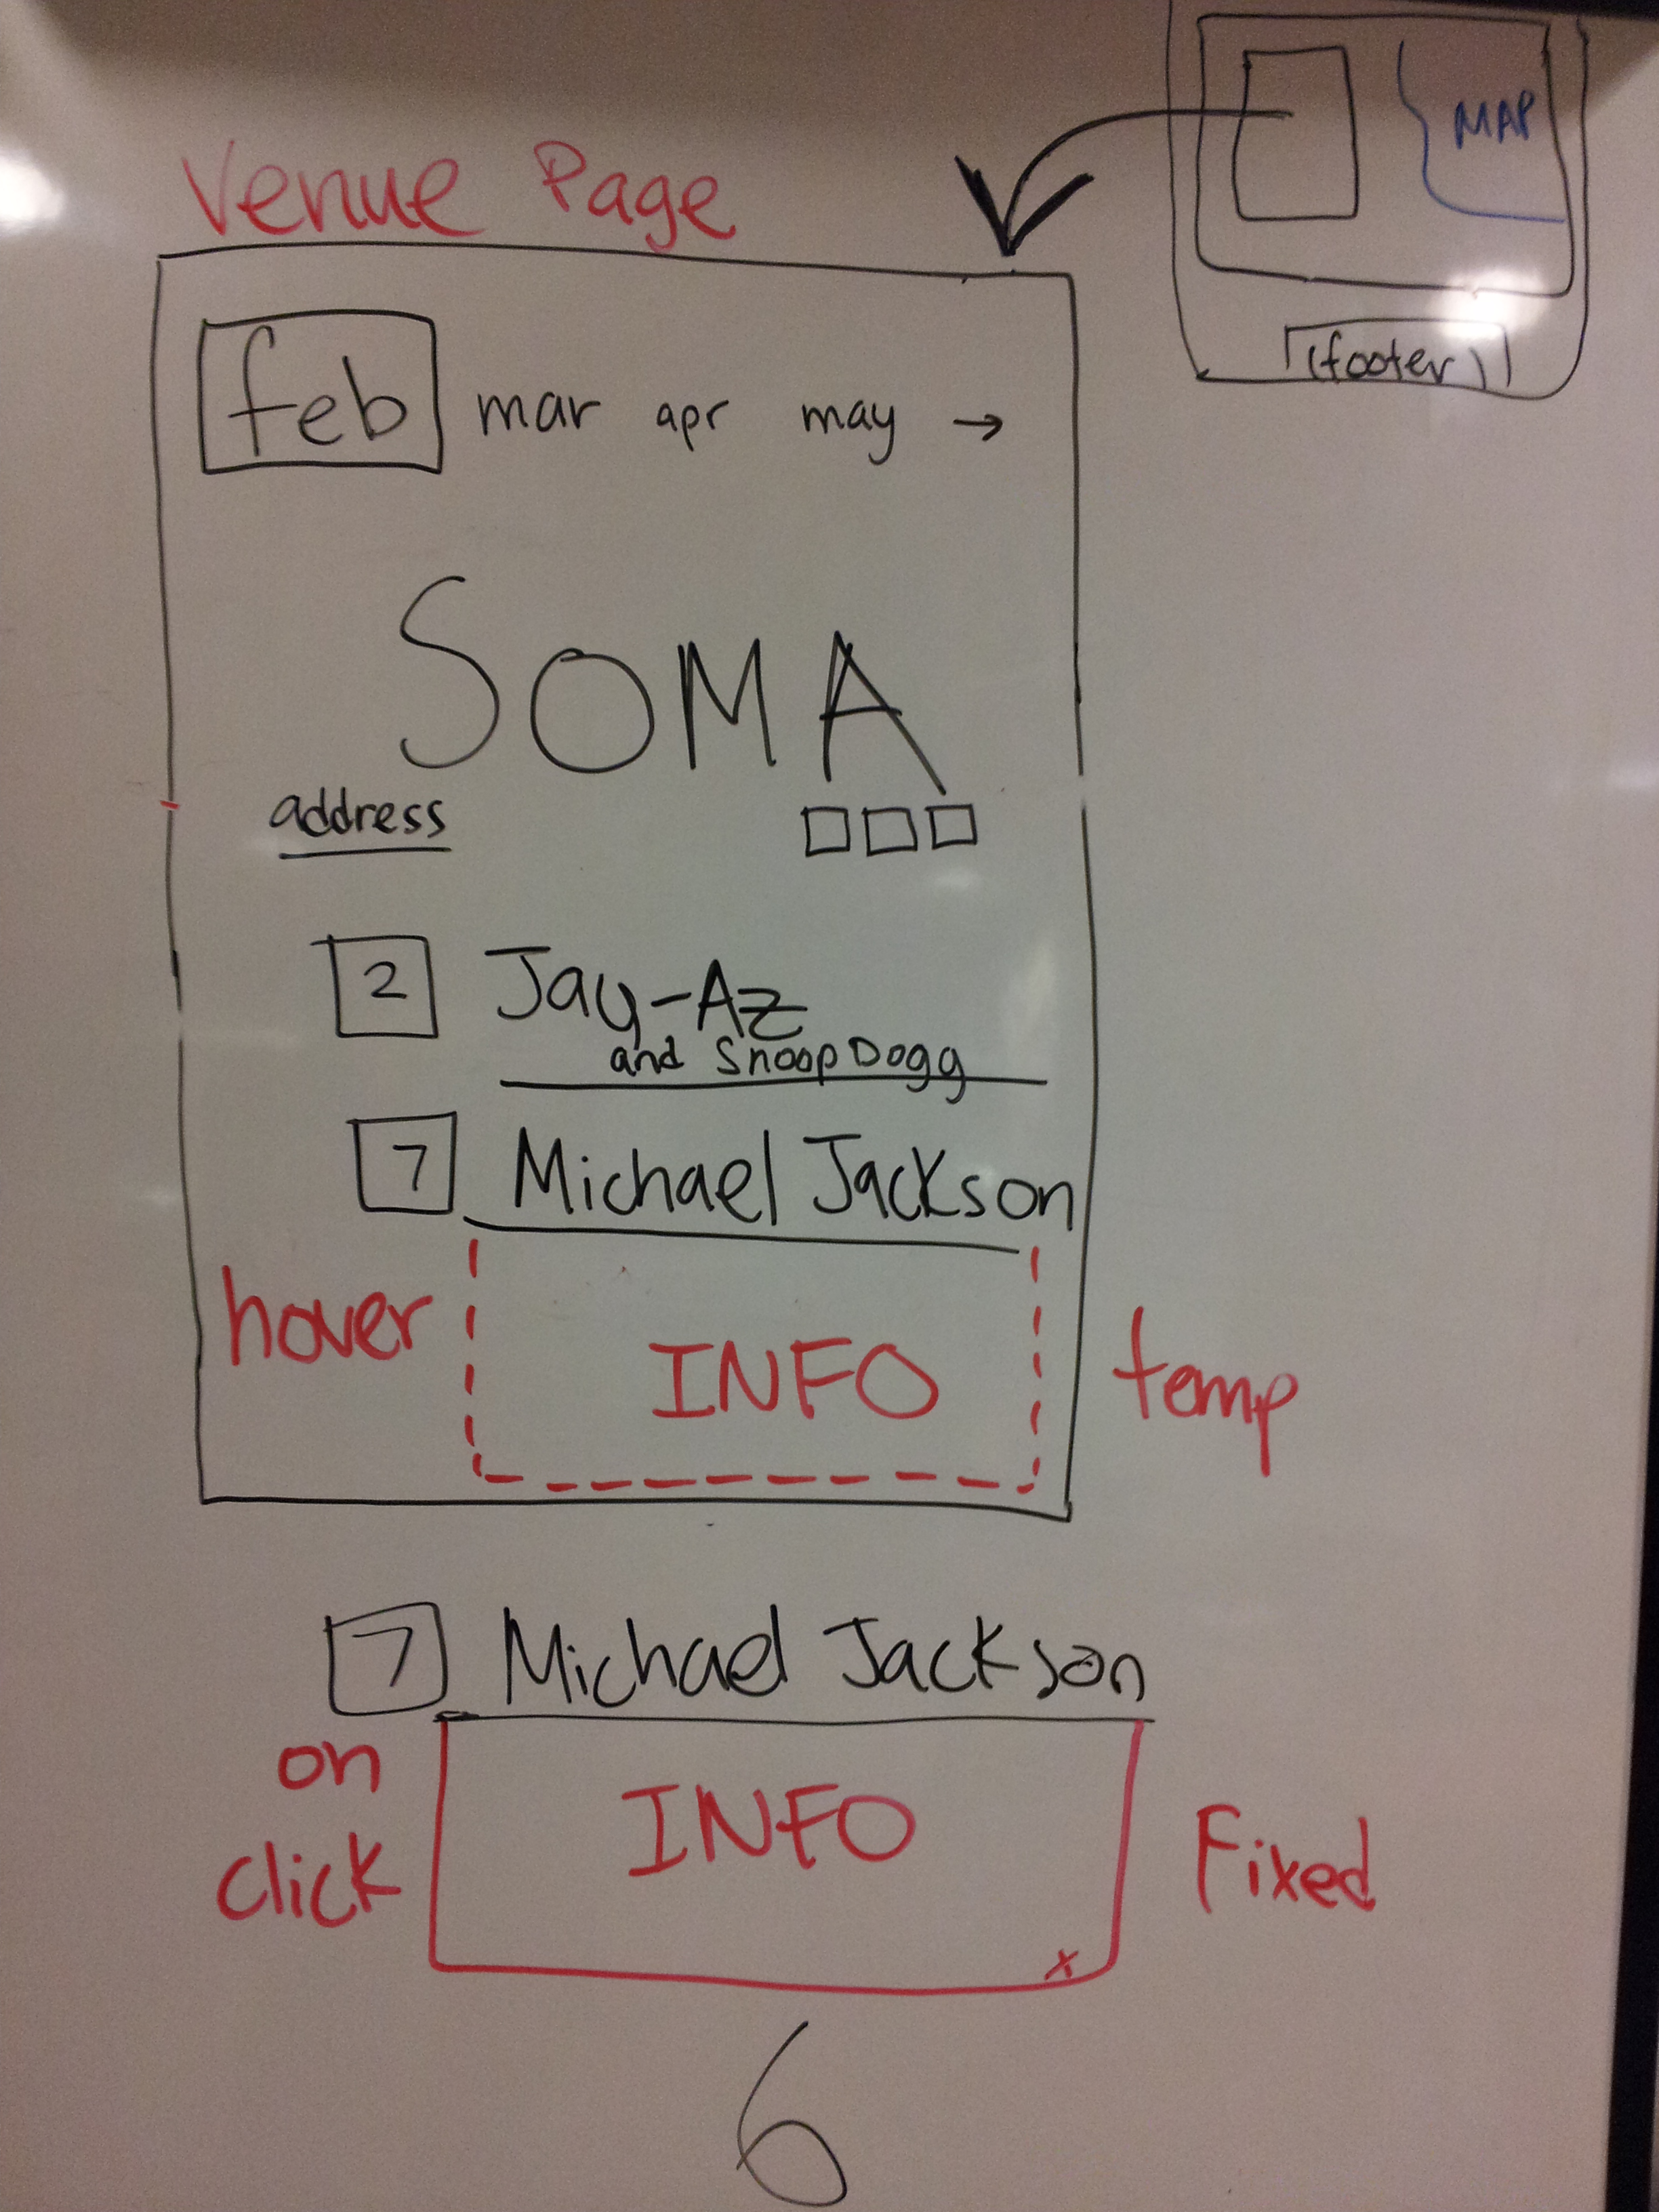 MAP
Venue Page
(footer)
feb mar apr may →
SOMA
address
2 Jay-Az
and Snoop Dogg
7 Michael Jackson
hover INFO temp
7 Michael Jackson
on
click INFO Fixed
x
6